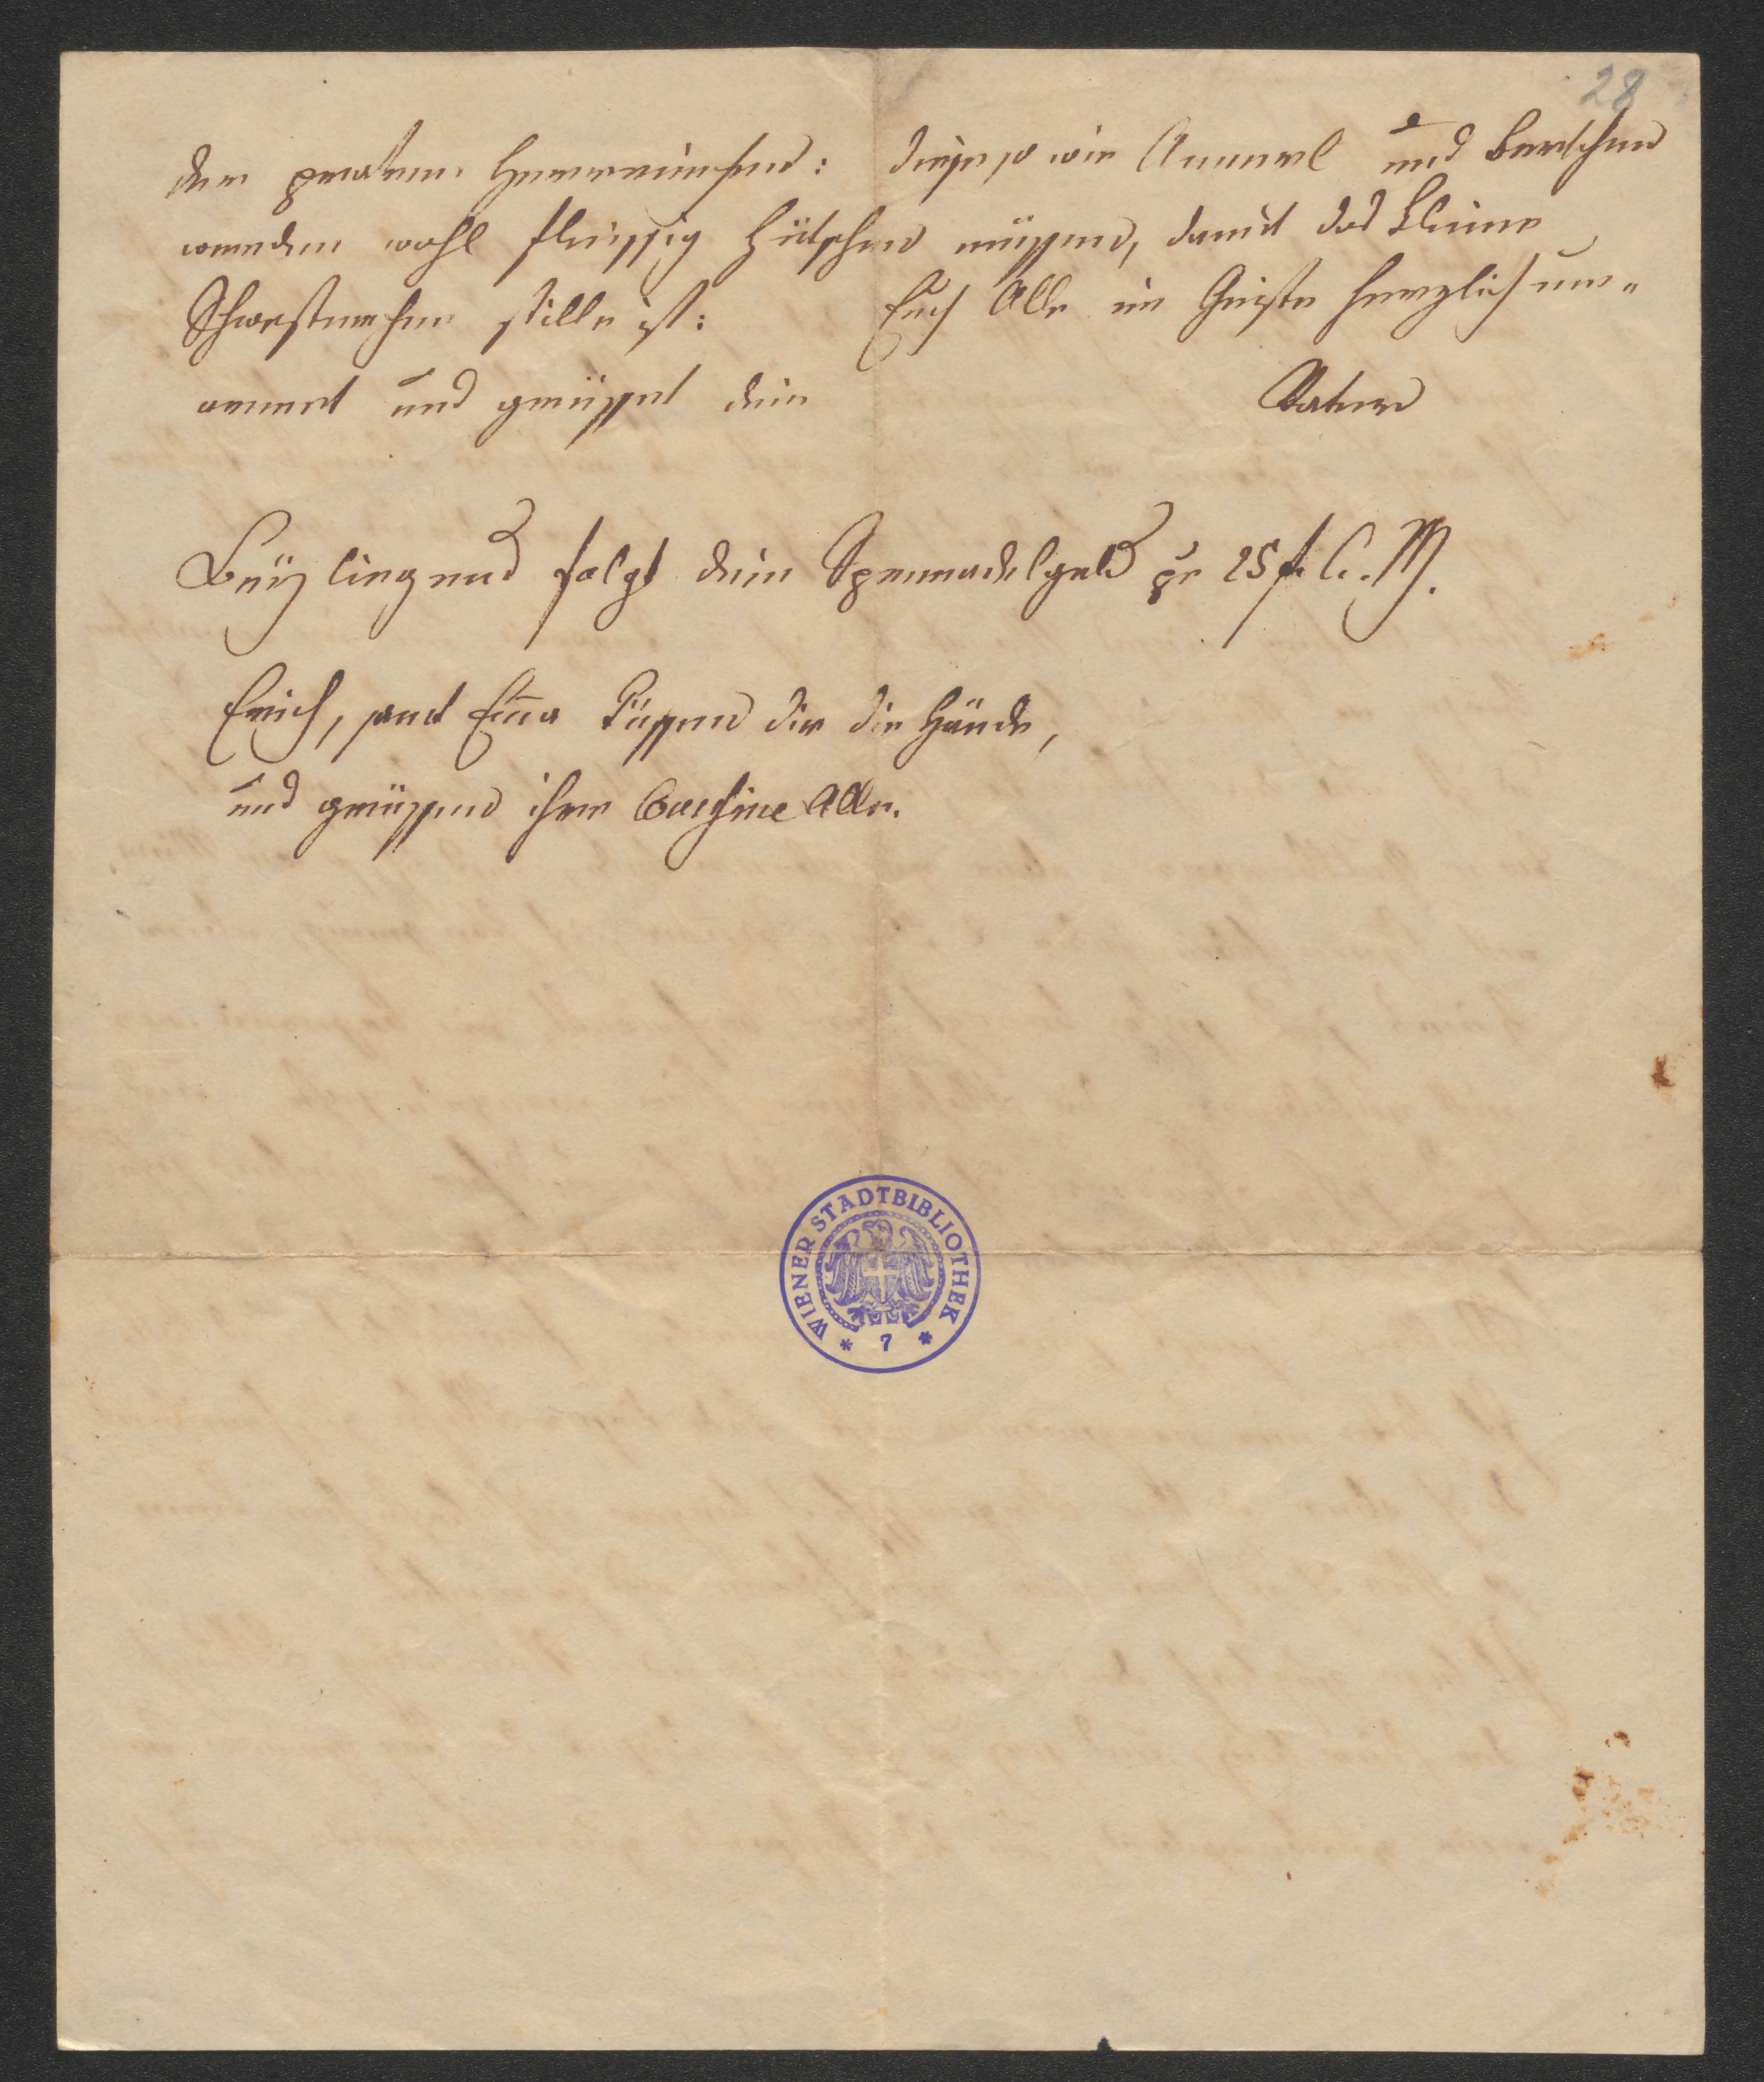 28
der braven Hermine: diese so wie Annerl und Bertchen
werden wohl fleissig hütschen müssen, damit das kleine
Schwesterchen stille ist: Euch Alle im Geiste herzlich um-
armet und grüsset dein Vater
folgt dein Spennadelgeld pr 25 f. C. M.
Erich, und Emma küssen dir die Hände,
und grüssen ihre Cousine Alle.
WIENER STADTBIBLIOTHEK
* 7 *